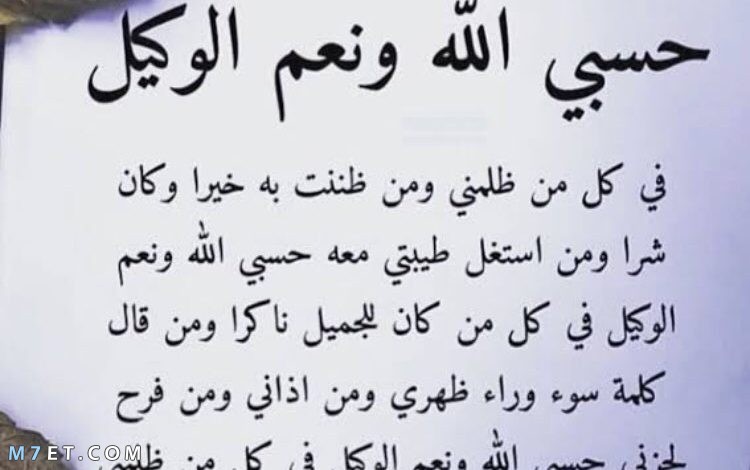 حسبي الله ونعم الوكيل
في كل من ظلمني ومن ظننت به خيرا وكان
شرا ومن استغل طيبتي معه حسبي الله ونعم
الوكيل في كل من كان للجميل ناكرا ومن قال
كلمة سوء وراء ظهري ومن اذاني ومن فرح
لحزني حسبي الله ونعم الوكيل في كل من ظلمني
M7ET.COM